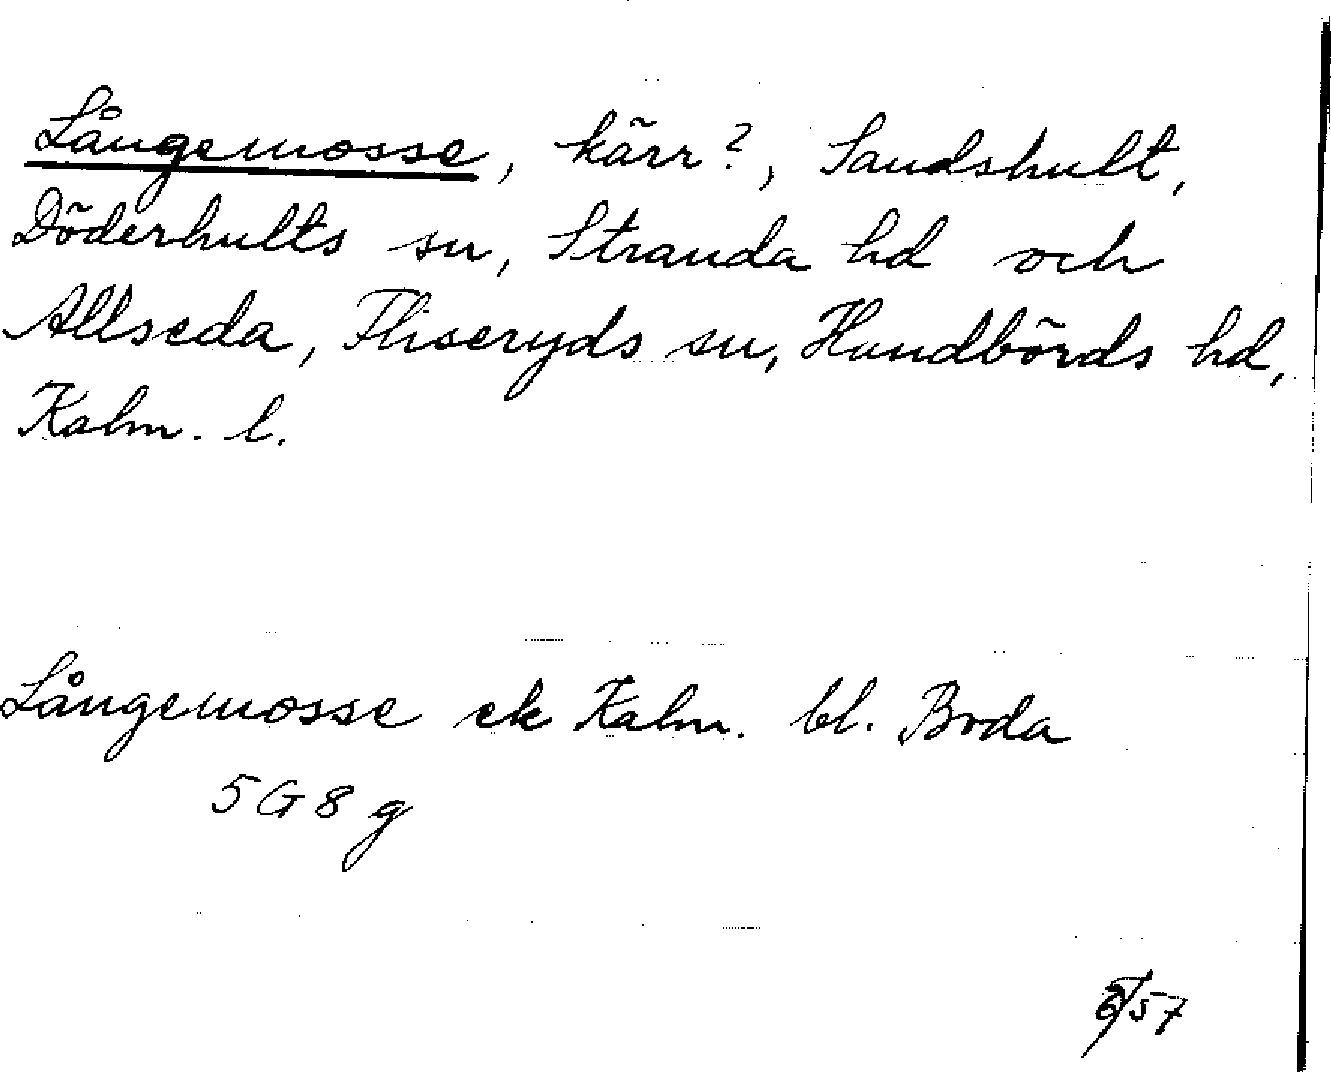 Långemosse, kärr?, Sandshult,
Döderhults sn, Stranda hd och
Allseda, Fliseryds sn, Handbörds hd,
Kalm. l.
Långemosse ek Kalm. bl. Boda
5 G 8 g
57